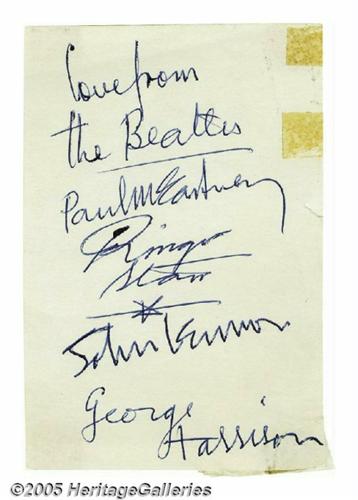 love from
the Beatles
Paul McCartney
Ringo
Starr
John Lennon
George
Harrison
©2005 HeritageGalleries